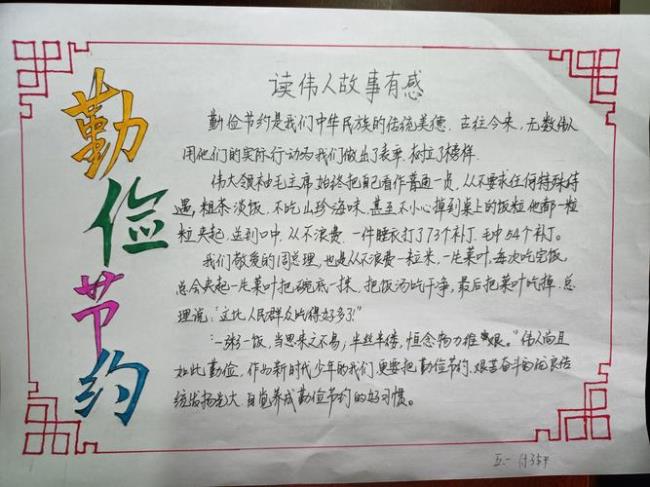 勤俭节约
读伟人故事有感
勤俭节约是我们中华民族的传统美德.古往今来,无数伟人
用他们的实际行动为我们做出了表率.树立了榜样.
伟大领袖毛主席始终把自己看作普通一员,从不要求任何特殊待
遇,粗茶淡饭,不吃山珍海味.甚至不小心掉到桌上的饭粒他都一粒
粒夹起,送到口中,从不浪费.一件睡衣打了73个补丁.毛巾54个补丁。
我们敬爱的周总理,也是从不浪费一粒米,一片菜叶.每次吃完饭,
总会夹起一片菜叶把碗底一抹,把饭汤吃干净,最后把菜叶吃掉.总
理说:"这比人民群众吃得好多了!"
"一粥一饭,当思来之不易,半丝半缕,恒念物力维艰。"伟人尚且
如此勤俭,作为新时代少年的我们,更要把勤俭节约.艰苦奋斗的优良传
统发扬光大.自觉养成勤俭节约的好习惯。
五.一